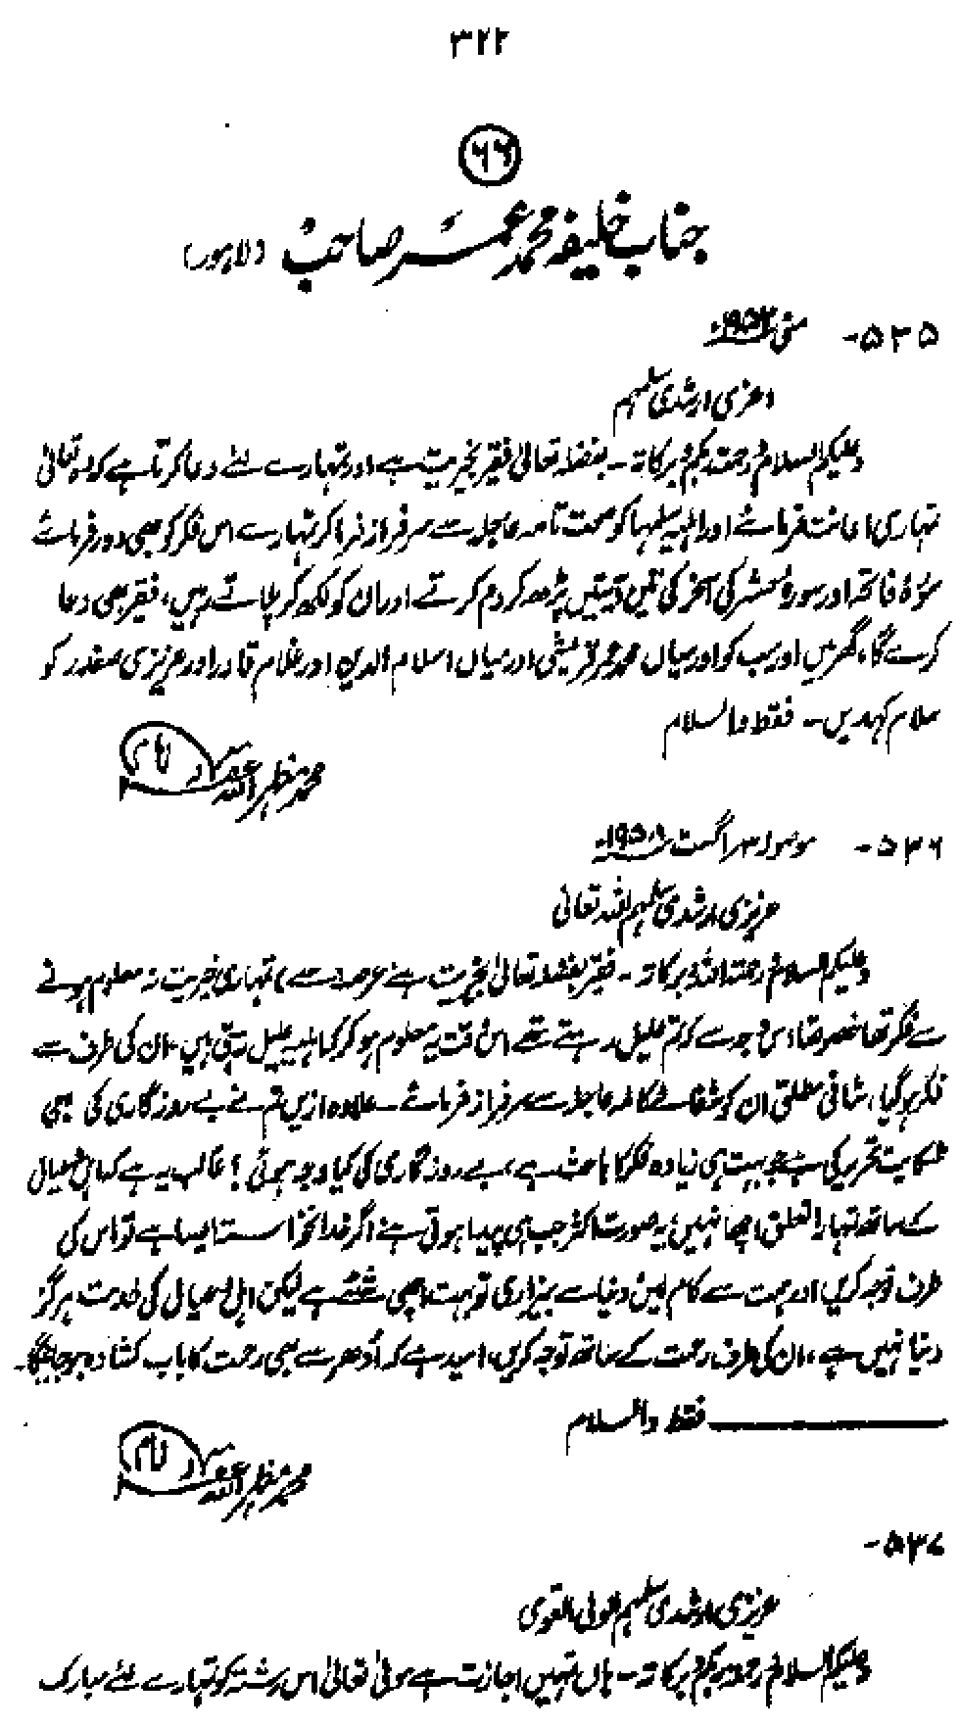 ۳۲۲
۶۶
جناب خلیفہ محمد عمر صاحب (لاہور)
۵۳۵- مئی ۱۹۵۲ء
عزیزی ارشدی سلمہم
وعلیکم السلام ورحمۃ ربکم وبرکاتہ۔ بفضلہ تعالیٰ فقیر بخیریت ہے اور تمہارے لئے دعا کرتا ہے کہ مولیٰ تعالیٰ
تمہاری اعانت فرمائے اور اہلیہ سلمہا کو صحت تامہ عاجلہ سے سرفراز فرما کر تمہارے اس فکر کو بھی دور فرمائے
سورۂ فاتحہ اور سورۂ حشر کی آخر کی تین آیتیں پڑھ کر دم کرتے اور ان کو لکھ کر پلاتے رہیں، فقیر بھی دعا
کرے گا، گھر میں اور سب کو اور میاں محمد عمر قریشی اور میاں اسلام الدین اور غلام قادر اور عزیزی صفدر کو
سلام کہدیں۔ فقط والسلام
محمد مظہر اللہ غفرلہ امام
۵۳۶- موصولہ ۳ اگست ۱۹۵۸ء
عزیزی ارشدی سلمہم اللہ تعالیٰ
وعلیکم السلام ورحمۃ اللہ وبرکاتہ۔ فقیر بفضلہ تعالیٰ بخیریت ہے، عرصہ سے تمہاری خیریت نہ معلوم ہونے
سے فکر تھا خصوصاً اس وجہ سے کہ تم علیل رہتے تھے اس وقت یہ معلوم ہو کر کہ اہلیہ علیل رہتی ہیں، ان کی طرف سے
فکر ہو گیا، شافی مطلق ان کو شفائے کاملہ عاجلہ سے سرفراز فرمائے۔ علاوہ ازیں تم نے بے روزگاری کی بھی
شکایت تحریر کی ہے جو بہت ہی زیادہ فکر کا باعث ہے، بے روزگاری کی کیا وجہ ہوئی؟ غالب یہ ہے کہ اہل و عیال
کے ساتھ تمہارا تعلق اچھا نہیں، یہ صورت اکثر جب ہی پیدا ہوتی ہے اگر خدانخواستہ ایسا ہے تو اس کی
طرف توجہ کریں اور ہمت سے کام لیں، دنیا سے بیزاری تو بہت اچھی شئے ہے لیکن اہل و عیال کی خدمت ہرگز
دنیا نہیں ہے، ان کی طرف رحمت کے ساتھ توجہ کریں، امید ہے کہ اُدھر سے بھی رحمت کا باب کشادہ ہو جائیگا۔
فقط والسلام
محمد مظہر اللہ غفرلہ امام
۵۳۷-
عزیزی ارشدی سلمہم المولیٰ القوی
وعلیکم السلام ورحمۃ ربکم وبرکاتہ۔ ہاں تمہیں اجازت ہے مولیٰ تعالیٰ اس رشتہ کو تمہارے لئے مبارک